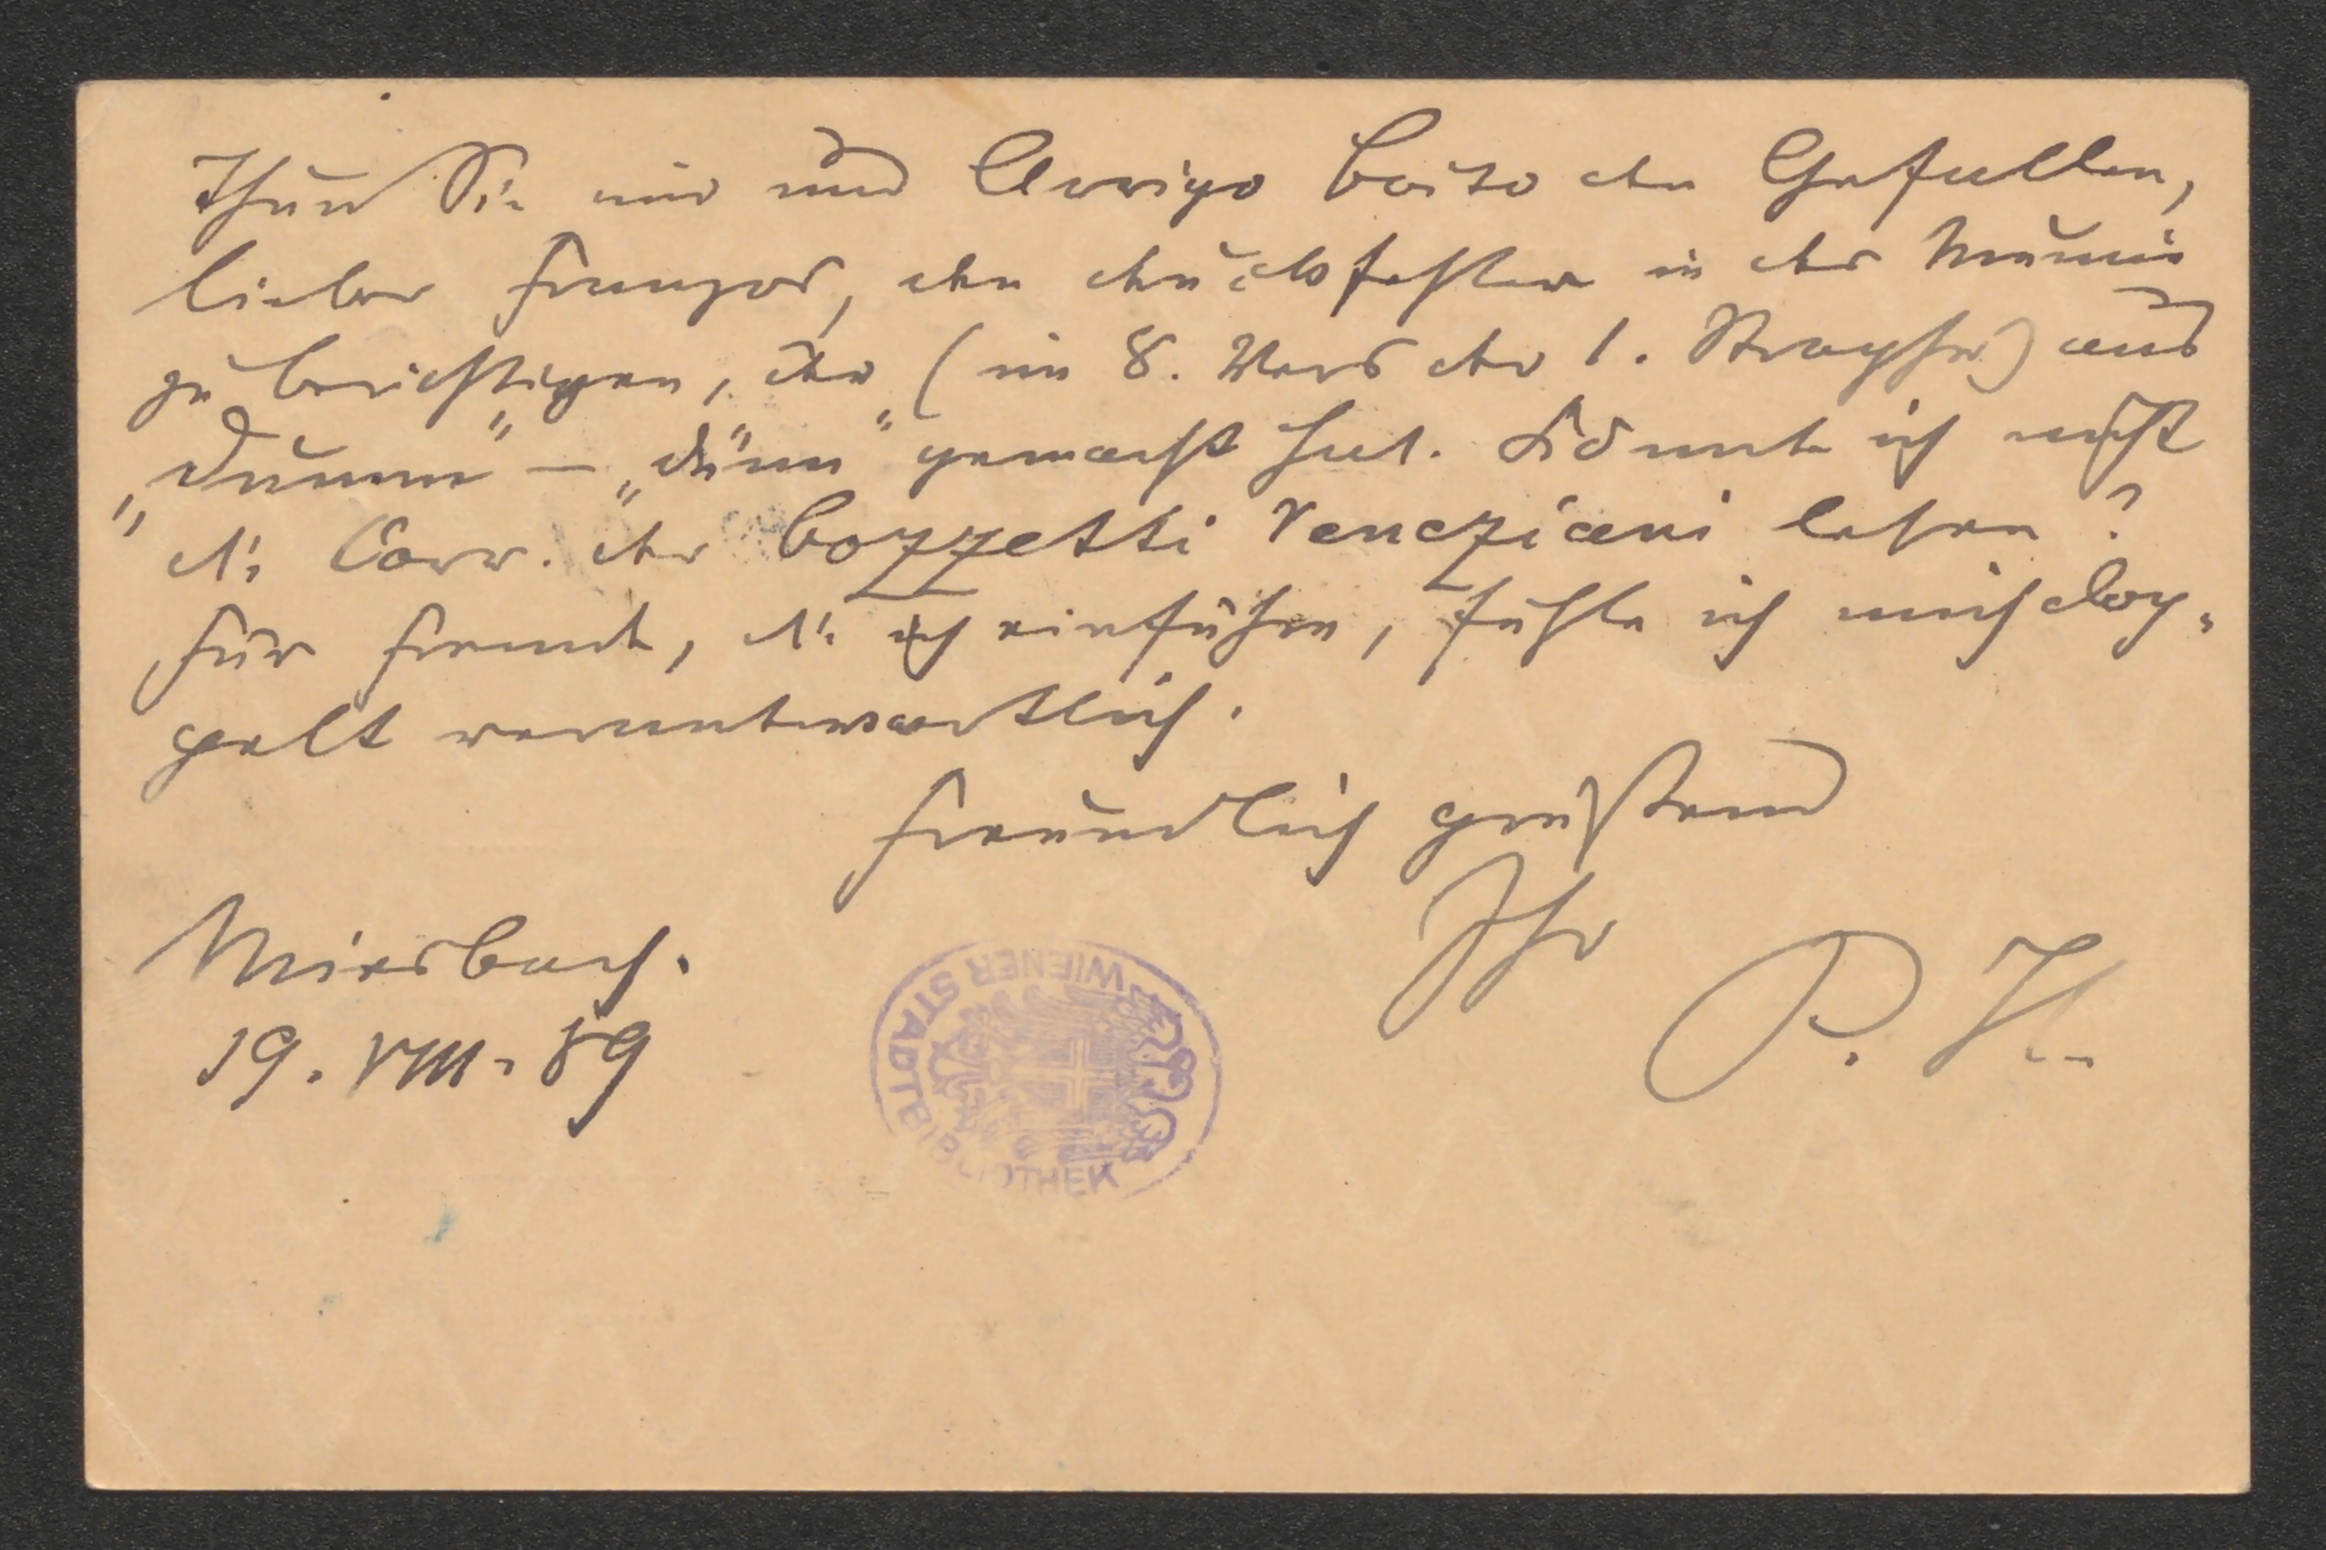 Thun Sie mir und Arrigo Boito den Gefallen,
lieber Franzos, den Druckfehler in der Mumie
zu berichtigen, der (im 8. Vers der 1. Strophe) aus
„dumm" – „dünn" gemacht hat. Könnte ich nicht
die Corr. der Bozzetti Veneziani lesen?
Für Fremde, die ich einführe, fühle ich mich dop-
pelt verantwortlich.
Freundlich grüßend
Ihr
P. H.
Miesbach.
19. VIII. 89
WIENER STADTBIBLIOTHEK